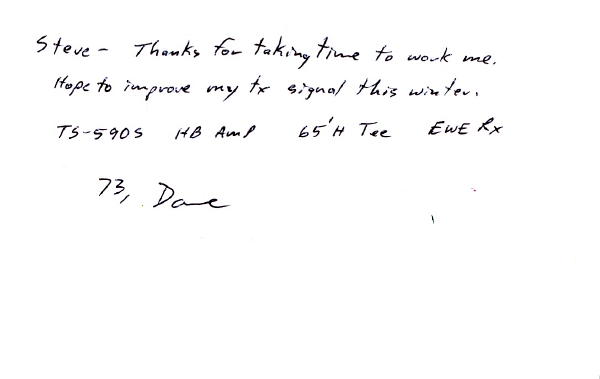 Steve - Thanks for taking time to work me.
Hope to improve my tx signal this winter.
TS-590S HB Amp 65'H Tee EWE Rx
73, Dave